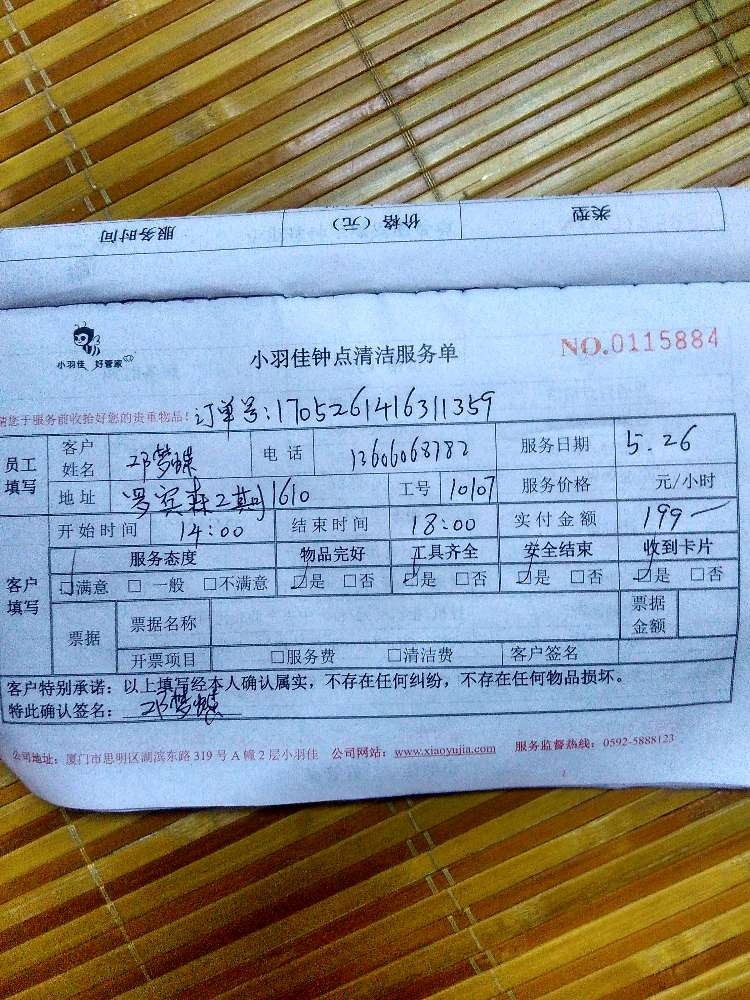 服务时间 价格（元） 类型
小羽佳 好管家
小羽佳钟点清洁服务单
NO.0115884
请您于服务前收拾好您的贵重物品！
订单号:1705261416311359
员工填写 客户姓名 邓梦蝶 电话 13606068782 服务日期 5.26
地址 罗宾森二期1610 工号 10107 服务价格 元/小时
开始时间 14:00 结束时间 18:00 实付金额 199
客户填写 服务态度 物品完好 工具齐全 安全结束 收到卡片
☑满意 □一般 □不满意 ☑是 □否 ☑是 □否 ☑是 □否 ☑是 □否
票据 票据名称 票据金额
开票项目 □服务费 □清洁费 客户签名
客户特别承诺：以上填写经本人确认属实，不存在任何纠纷，不存在任何物品损坏。
特此确认签名： 邓梦蝶
公司地址：厦门市思明区湖滨东路 319 号 A 幢 2 层小羽佳 公司网站：www.xiaoyujia.com 服务监督热线：0592-5888123